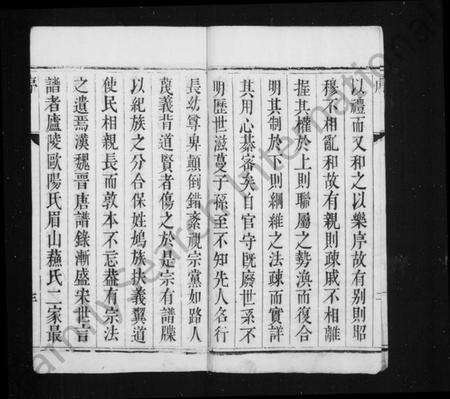 以禮而又和之以樂序故有别則昭
穆不相亂和故有親則疎戚不相離
握其權於上則聯屬之勢渙而復合
明其制於下則綱維之法疎而實詳
其用心綦密矣自官守既廢世系不
明歷世滋蔓子孫至不知先人名行
長幼尊卑顛倒錯紊視宗黨如路人
蔑義背道賢者傷之於是宗有譜牒
以紀族之分合保姓鳩族扶義翼道
使民相親長而敦本不忘葢有宗法
之遺焉漢魏晉唐譜錄漸盛宋世言
譜者廬陵歐陽氏眉山蘇氏二家最
序
FamilySearch International